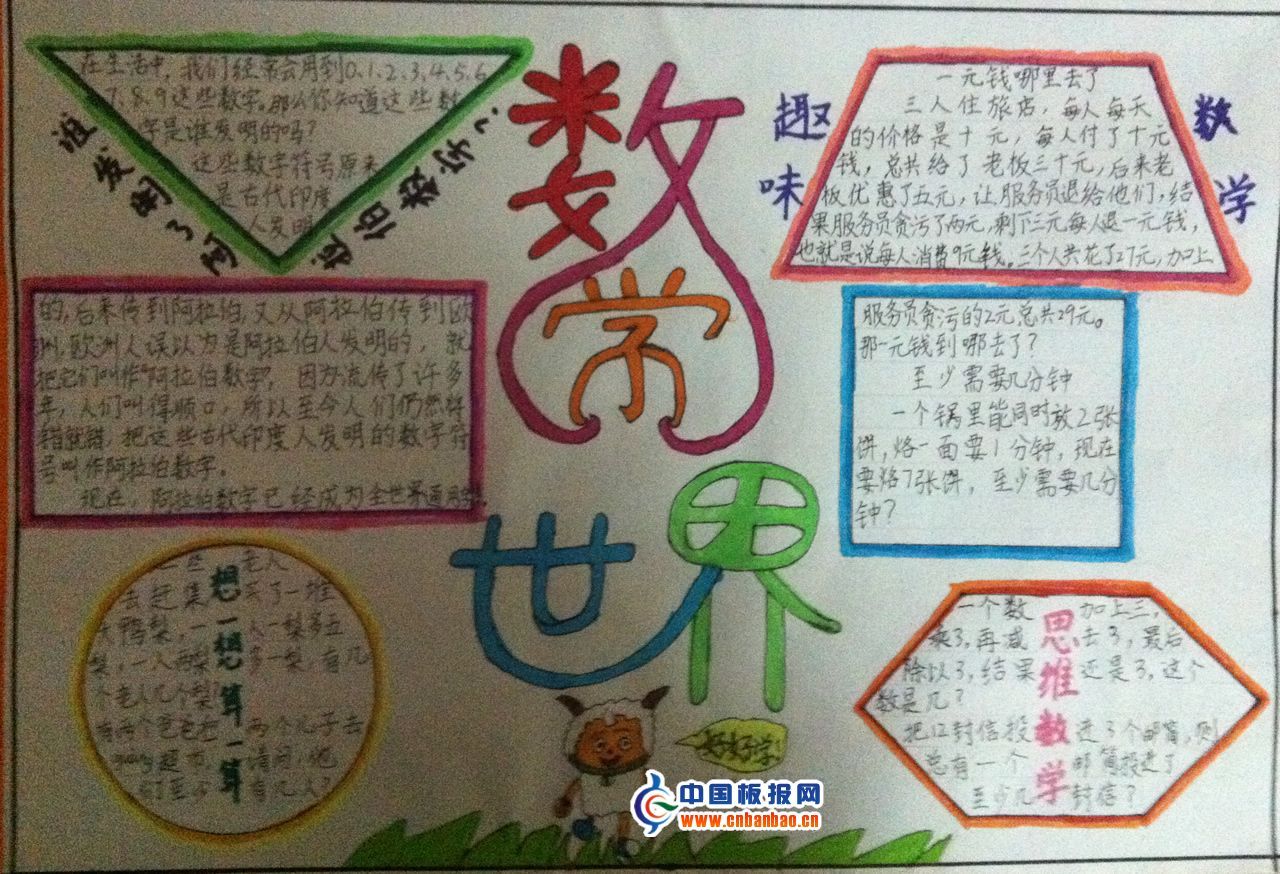 数学世界
谁发明了阿拉伯数字?
在生活中,我们经常会用到0.1.2.3.4.5.6
7.8.9这些数字。那么你知道这些数
字是谁发明的吗?
这些数字符号原来
是古代印度
人发明
的,后来传到阿拉伯,又从阿拉伯传到欧
洲,欧洲人误以为是阿拉伯人发明的,就
把它们叫作"阿拉伯数字",因为流传了许多
年,人们叫得顺口,所以至今人们仍然将
错就错,把这些古代印度人发明的数字符
号叫作阿拉伯数字。
现在,阿拉伯数字已经成为全世界通用
想一想算一算
老人
去赶集 买了一堆
鸭梨,一人一梨多
梨,一人两梨 多一梨,有几
个老人几个梨?
有两个爸爸在 两个儿子去
guang超市,请问,他
们至少有几人?
趣味数学
一元钱哪里去了
三人住旅店,每人每天
的价格是十元,每人付了十元
钱,总共给了老板三十元,后来老
板优惠了五元,让服务员退给他们,结
果服务员贪污了两元,剩下三元每人退一元钱,
也就是说每人消费9元钱。三个人共花了27元,加上
服务员贪污的2元总共29元。
那一元钱到哪去了?
至少需要几分钟
一个锅里能同时放2张
饼,烙一面要1分钟,现在
要烙7张饼,至少需要几分
钟?
思维数学
一个数 加上三,
乘3,再减去3,最后
除以3,结果还是3,这个
数是几?
把12封信投进3个邮筒,则
总有一个邮筒投进了
至少几封信?
好好学!
中国板报网
www.cnbanbao.cn